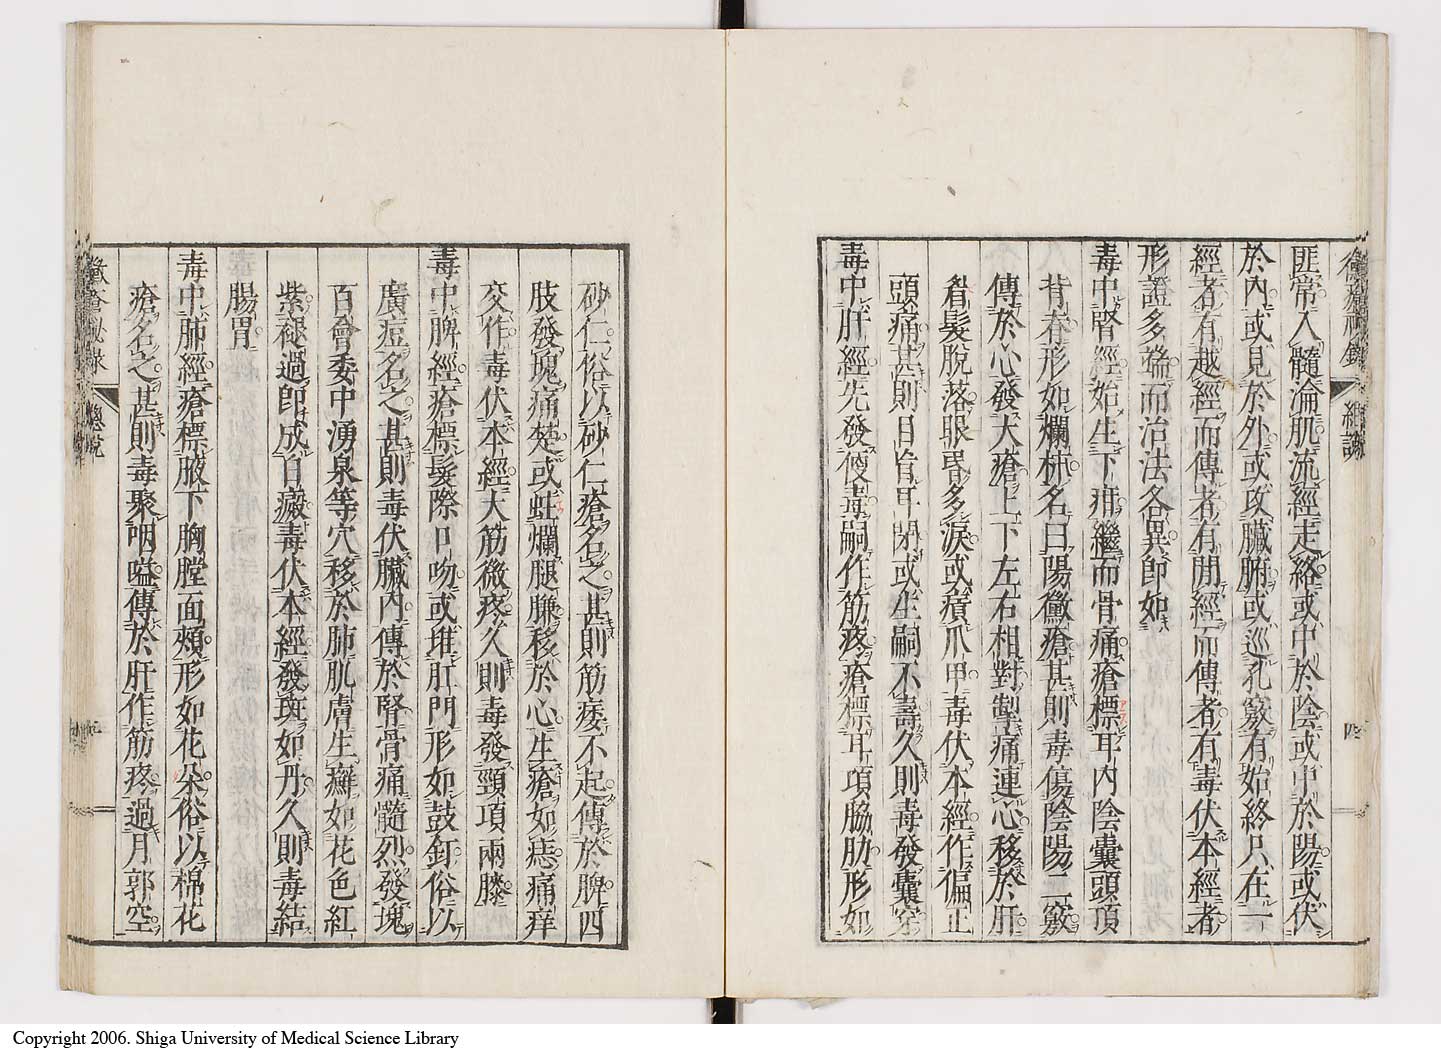 匪常入髓淪肌流經走絡或中於陰或中於陽或伏
於內或見於外或攻臟腑或巡孔竅有始終只在一
經者有越經而傳者有間經而傳者有毒伏本經者
形證多端而治法各異即如
毒中腎經始生下疳繼而骨痛瘡標耳內陰囊頭頂
背脊形如爛柿名曰陽黴瘡甚則毒傷陰陽二竅
傳於心發大瘡上下左右相對掣痛連心移於肝
眉髮脫落眼昏多淚或瘨爪甲毒伏本經作偏正
頭痛甚則目盲耳閉或生嗣不壽久則毒發囊穿
毒中肝經先發便毒嗣作筋疼瘡標耳項脇肋形如
砂仁俗以砂仁瘡名之甚則筋痿不起傳於脾四
肢發塊痛楚或蛀爛腿臁移於心生瘡如痣痛痒
交作毒伏本經大筋微疼久則毒發頸項兩膝
毒中脾經瘡標髮際口吻或堆肛門形如鼓釘俗以
廣痘名之甚則毒伏臟內傳於腎骨痛髓烈發塊
百會委中湧泉等穴移於肺肌膚生癬如花色紅
紫褪過即成白癜毒伏本經發斑如丹久則毒結
腸胃
毒中肺經瘡標腋下胸膛面頰形如花朵俗以棉花
瘡名之甚則毒聚咽嗌傳於肝作筋疼過月郭空
黴瘡秘錄
總說
四
五
Copyright 2006. Shiga University of Medical Science Library